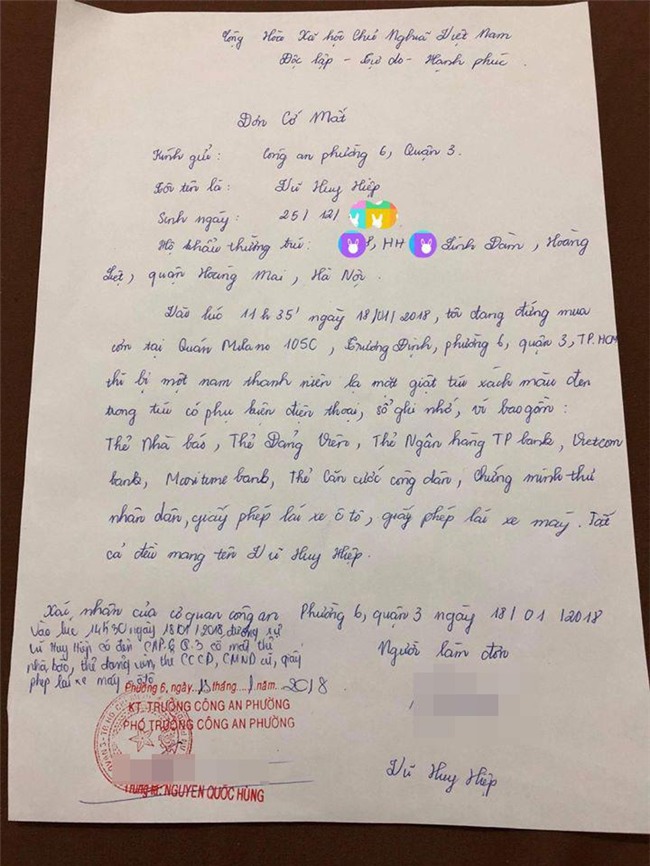 Cộng Hòa Xã hội Chủ Nghĩa Việt Nam
Độc lập - Tự do - Hạnh phúc.
Đơn Cớ Mất
Kính gửi: Công an phường 6, Quận 3.
Tôi tên là: Vũ Huy Hiệp
Sinh ngày: 25/12/
Hộ khẩu thường trú: HH Linh Đàm, Hoàng
Liệt, quận Hoàng Mai, Hà Nội.
Vào lúc 11h35' ngày 18/01/2018, tôi đang đứng mua
cơm tại Quán Milano 105C, Trương Định, phường 6, quận 3, TP.HCM
thì bị một nam thanh niên lạ mặt giật túi xách màu đen
trong túi có phụ kiện điện thoại, sổ ghi nhớ, ví bao gồm:
Thẻ Nhà báo, Thẻ Đảng Viên, Thẻ Ngân hàng TP bank, Vietcom
bank, Maritime bank, Thẻ Căn cước công dân, Chứng minh thư
nhân dân, giấy phép lái xe ô tô, giấy phép lái xe máy. Tất
cả đều mang tên Vũ Huy Hiệp.
Phường 6, quận 3 ngày 18/01/2018
Người làm đơn
Vũ Huy Hiệp
Xác nhận của cơ quan công an
Vào lúc 14h30 ngày 18/01/2018 đương sự
Vũ Huy Hiệp có đến CAP.6 Q.3 cớ mất thẻ
nhà báo, thẻ đảng viên, thẻ CCCD, CMND cũ, giấy
phép lái xe máy, ôtô
Phường 6, ngày 18 tháng 1 năm 2018
KT. TRƯỞNG CÔNG AN PHƯỜNG
PHÓ TRƯỞNG CÔNG AN PHƯỜNG
Trung tá: NGUYỄN QUỐC HÙNG